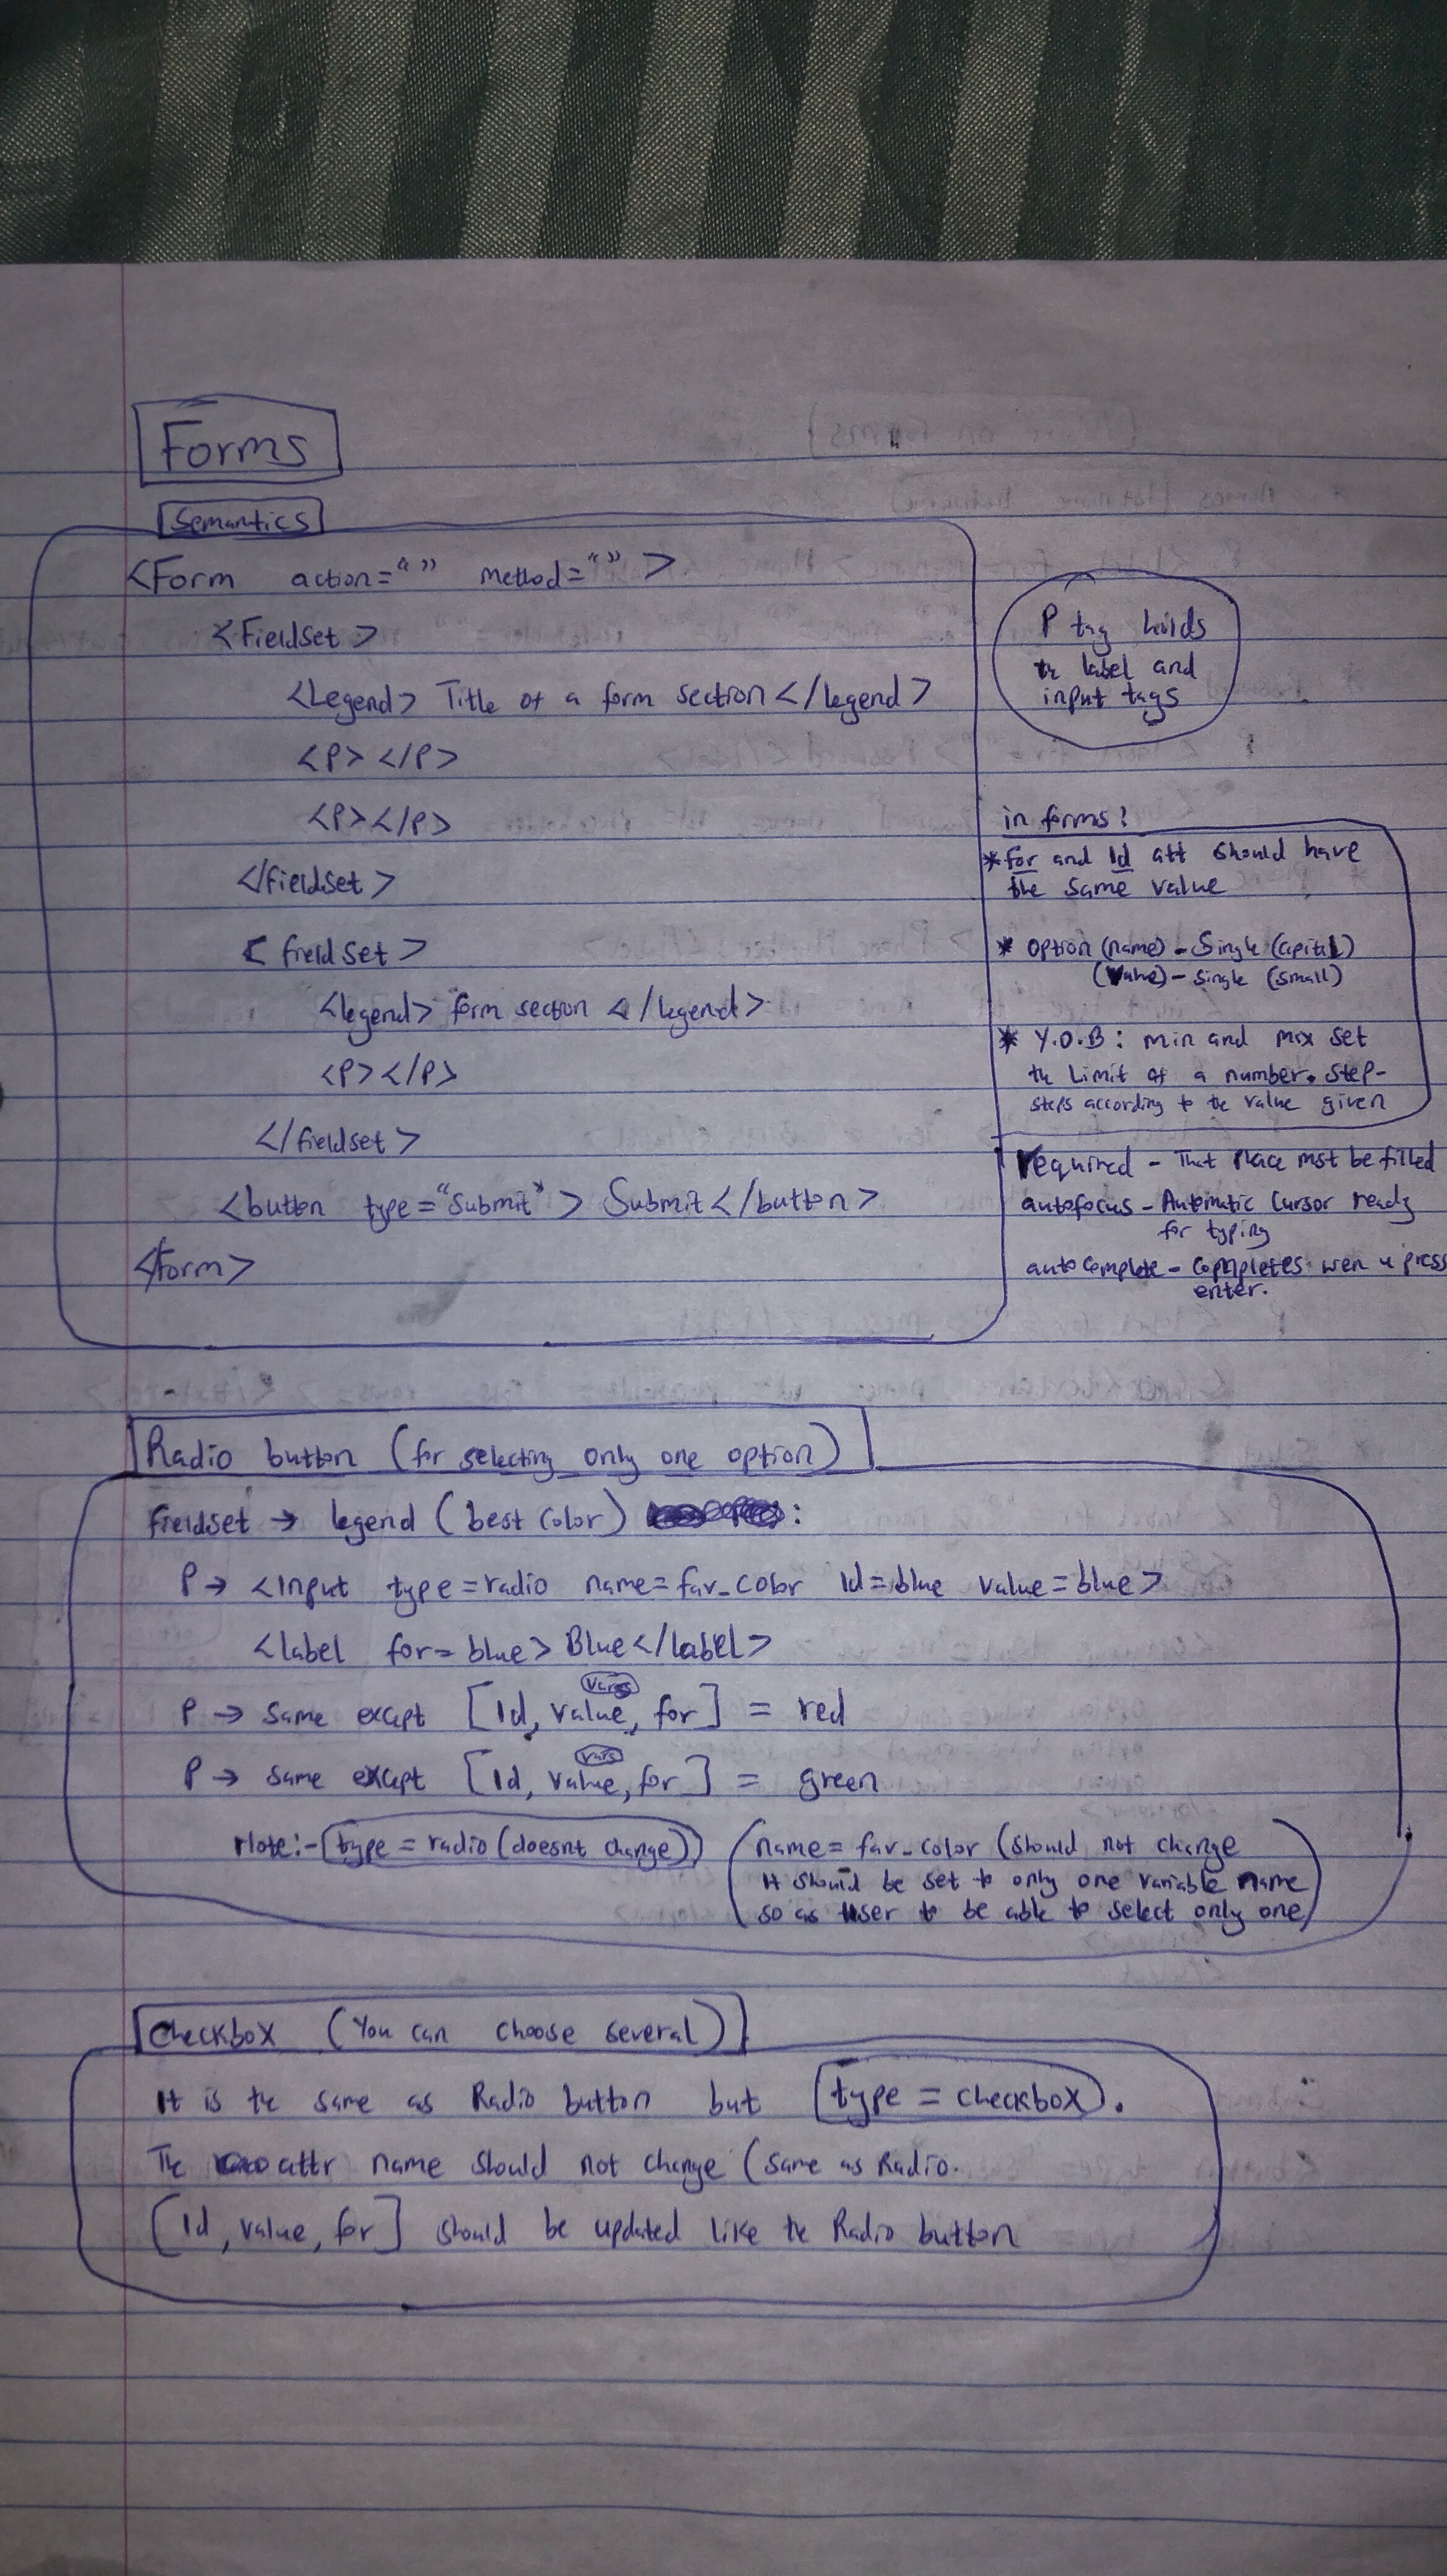 Forms
Semantics
<Form action="" method="">
<Fieldset>
<Legend> Title of a form section </legend>
<P> </P>
<P></P>
</fieldset>
<fieldset>
<legend> form section </legend>
<P></P>
</fieldset>
<button type="submit"> Submit </button>
</form>
P tag holds
the label and
input tags
in forms:
*for and Id att should have
the same value
* option (name) - Single (capital)
(Value) - single (small)
* Y.O.B: min and max set
the Limit of a number. Step-
steps according to the value given
required - That place mst be filled
autofocus - Automatic cursor ready
for typing
autocomplete - completes wen u press
enter.
Radio button (for selecting only one option)
fieldset → legend (best color) :
P → <Input type=radio name=fav_color Id=blue value=blue>
<label for=blue> Blue</label>
vars
P → Same except [Id, value, for] = red
vars
P → Same except [Id, value, for] = green
Note:- type = radio (doesnt change)
(name= fav_color (should not change
It should be set to only one variable name
so as user to be able to select only one)
Checkbox (You can choose several)
It is the same as Radio button but type = checkbox.
The attr name should not change (same as Radio.
[Id, value, for] should be updated like the Radio button